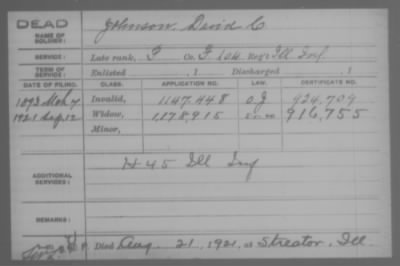 DEAD
NAME OF SOLDIER: Johnson, David C
SERVICE: Late rank, P Co. G, 104 Reg't Ill Inf.
TERM OF SERVICE: Enlisted , 1 Discharged , 1
DATE OF FILING. CLASS. APPLICATION NO. LAW. CERTIFICATE NO.
1893 Mch 7 Invalid, 1147,448 O.J 924,709
1921 Sep. 12 Widow, 1,178,915 916,755
Minor,
ADDITIONAL SERVICES: H 45 Ill Inf
REMARKS:
Died Aug. 21, 1921, at Streator, Ill.